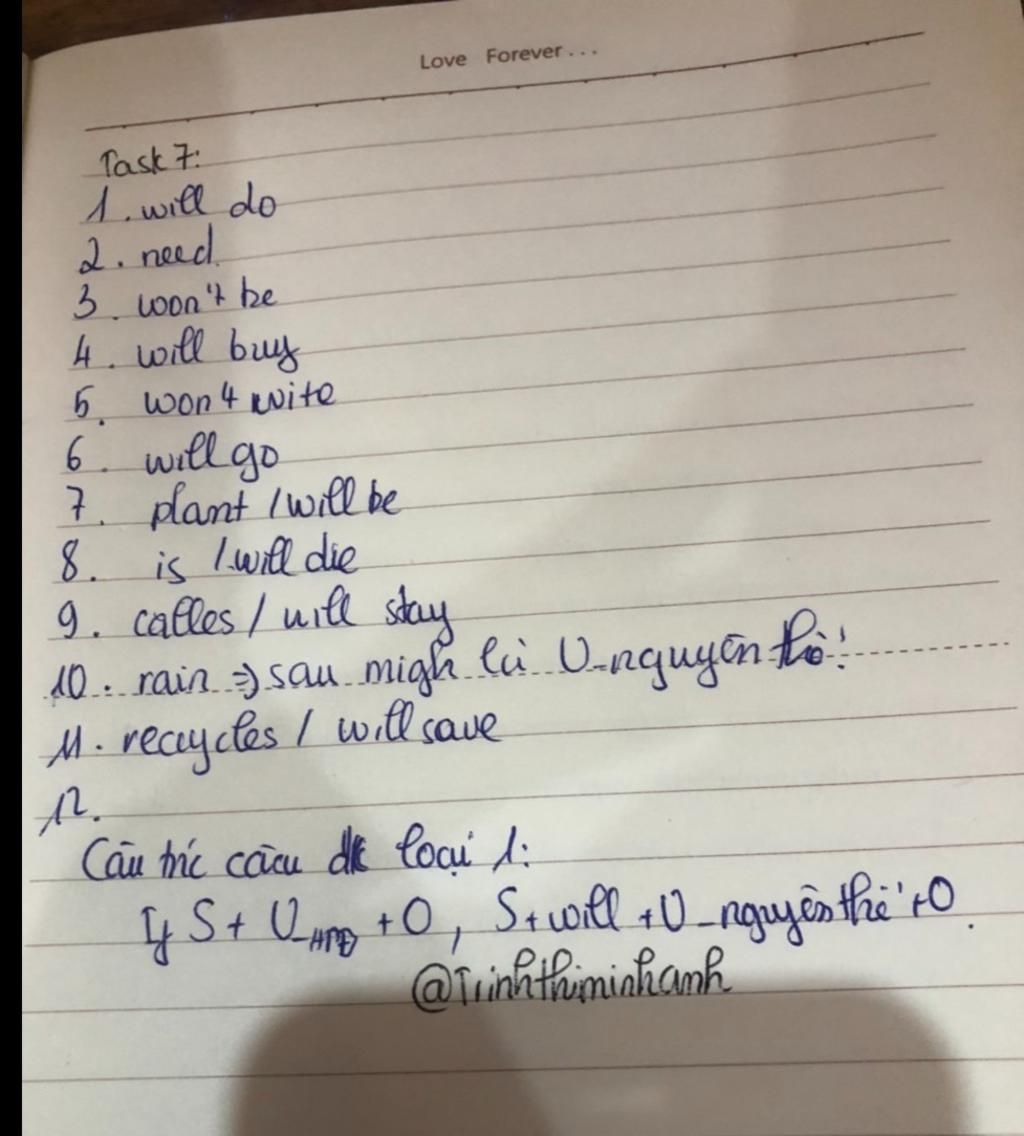 Love Forever...
Task 7:
1. will do
2. need
3. won't be
4. will buy
5. won't write
6. will go
7. plant / will be
8. is / will die
9. calles / will stay
10. rain => sau migh là V_nguyên thể!
11. recycles / will save
12.
Cấu tríc câu đk loại 1:
If S + V_HTĐ + O, S + will + V_nguyên thể + O.
@Trinhthiminhanh